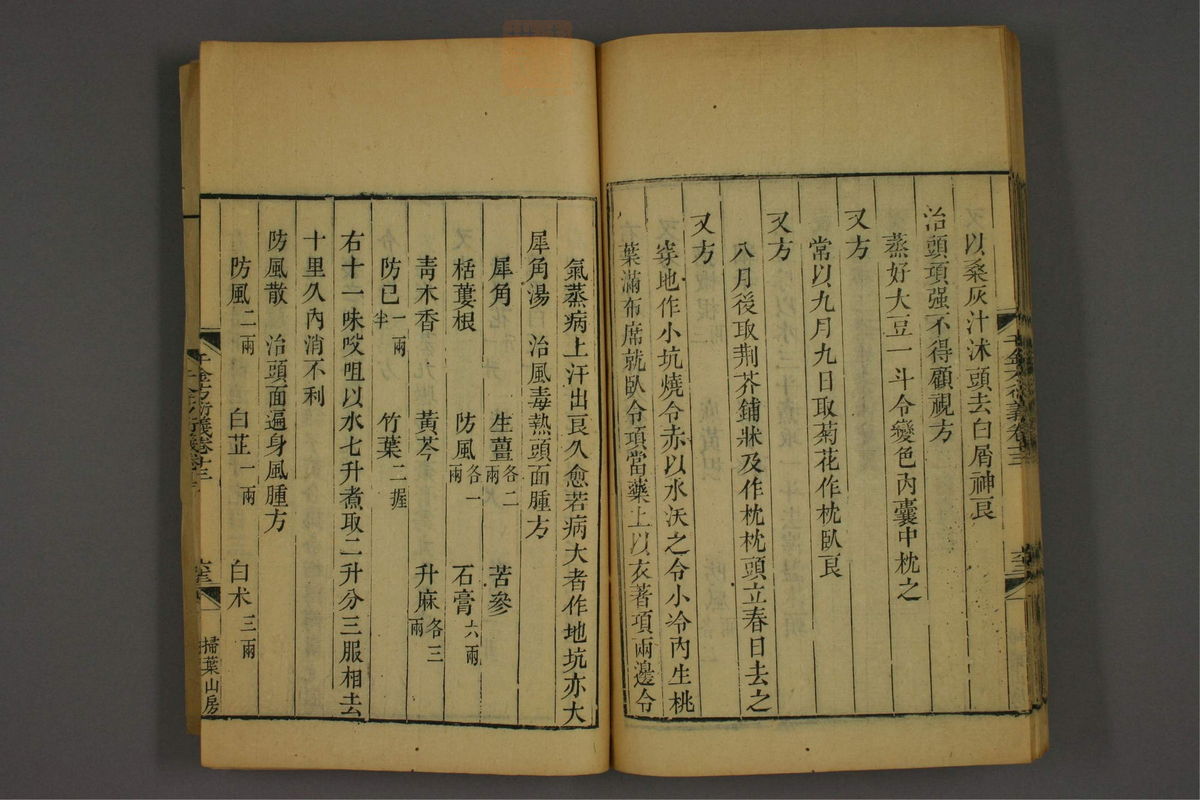 以桑灰汁沐頭去白屑神良
治頭項强不得顧視方
蒸好大豆一斗令變色內囊中枕之
又方
常以九月九日取菊花作枕臥良
又方
八月後取荆芥鋪牀及作枕枕頭立春日去之
又方
穿地作小坑燒令赤以水沃之令小冷內生桃
葉滿布席就臥令項當藥上以衣著項兩邊令
氣蒸病上汗出良久愈若病大者作地坑亦大
犀角湯 治風毒熱頭面腫方
犀角 生薑各二兩 苦參
栝蔞根 防風各一兩 石膏六兩
靑木香 黃芩 升麻各三兩
防已一兩半 竹葉二握
右十一味㕮咀以水七升煮取二升分三服相去
十里久內消不利
防風散 治頭面遍身風腫方
防風二兩 白芷一兩 白术三兩
千金方衍義卷十三
掃葉山房